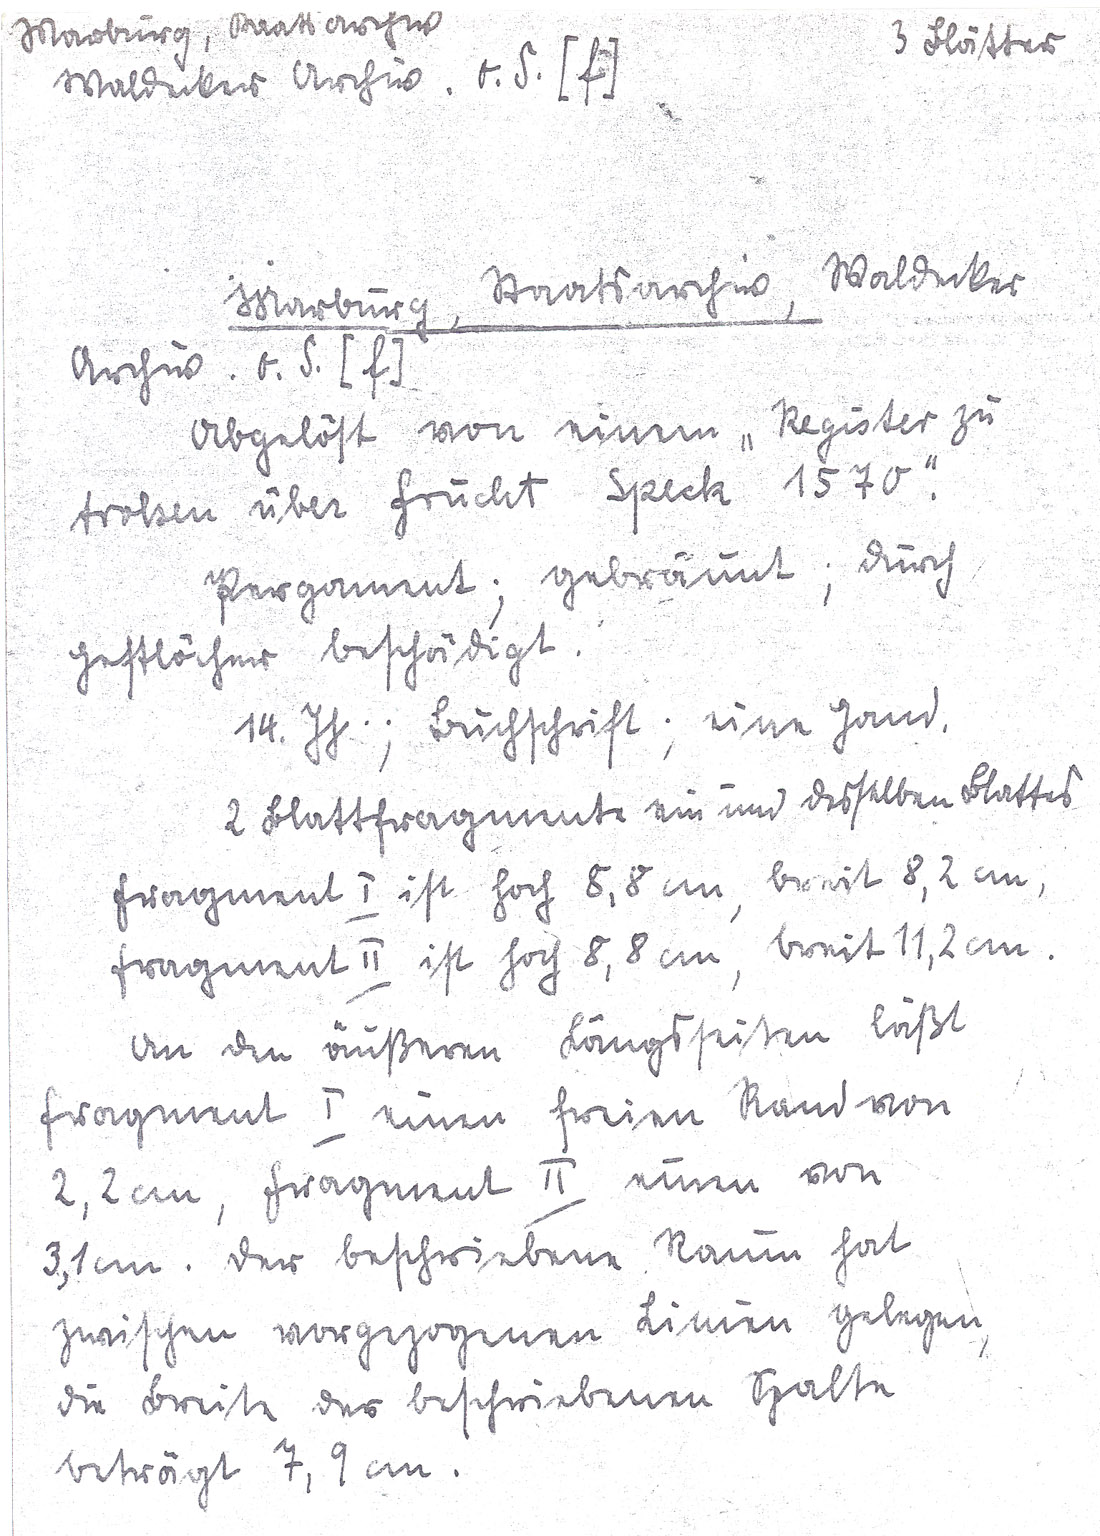 Marburg, Staatsarchiv
3 Blätter
Waldecker Archiv. o. S. [f]
Marburg, Staatsarchiv, Waldecker
Archiv. o. S. [f]
Abgelöst von einem „Register zu
troken über Frucht Speck 1570".
Pergament; gebräunt; durch
Heftlöcher beschädigt.
14. Jh.; Buchschrift; eine Hand.
2 Blattfragmente ein und desselben Blattes
Fragment I ist hoch 8,8 cm, breit 8,2 cm,
Fragment II ist hoch 8,8 cm, breit 11,2 cm.
An den äußeren Längsseiten läßt
Fragment I einen freien Rand von
2,2 cm, Fragment II einen von
3,1 cm. Der beschriebene Raum hat
zwischen vorgezogenen Linien gelegen,
die Breite der beschriebenen Spalte
beträgt 7,9 cm.